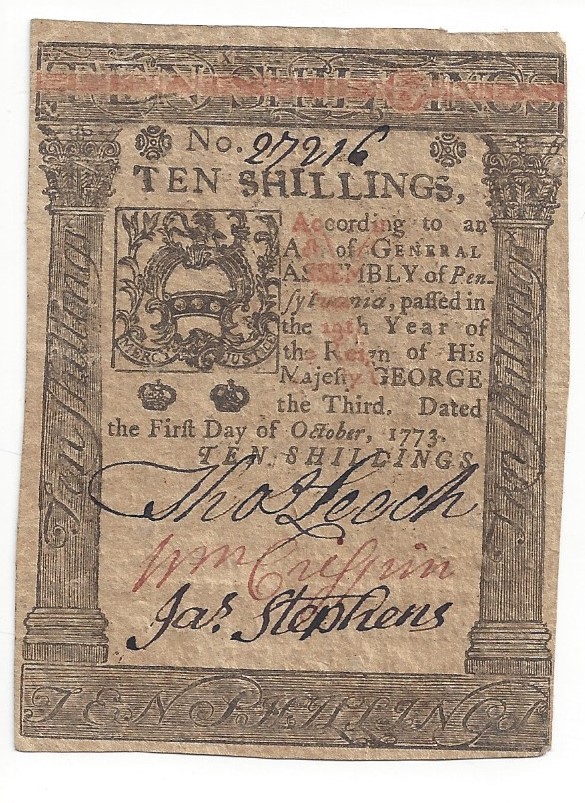 TEN SHILLINGS
No. 27216
TEN SHILLINGS,
According to an
Act of GENERAL
ASSEMBLY of Pen-
ſylvania, paſſed in
the 13th Year of
the Reign of His
Majeſty GEORGE
the Third. Dated
the Firſt Day of October, 1773.
MERCY JUSTICE
TEN SHILLINGS
Ten Shillings
Ten Shillings
Thos Leech
Wm Criſpin
Jas. Stephens
TEN SHILLINGS